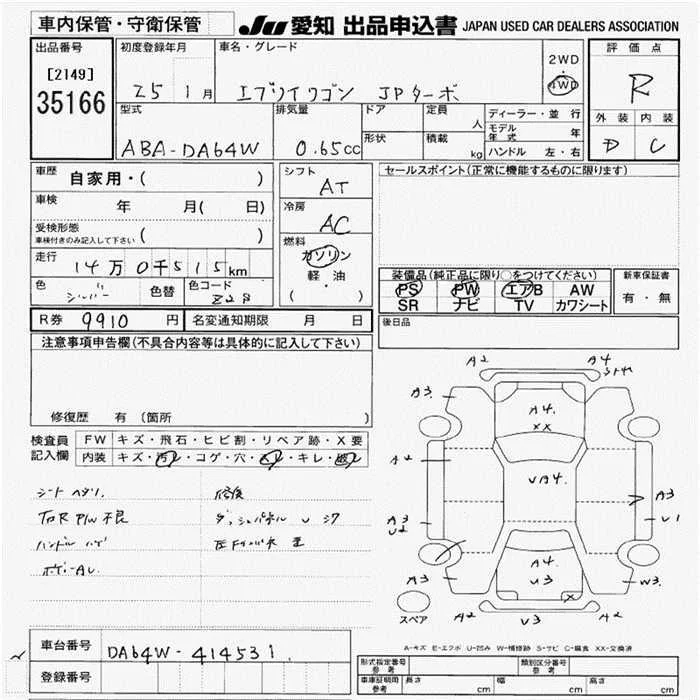 車内保管・守衛保管
JU 愛知 出品申込書 JAPAN USED CAR DEALERS ASSOCIATION
出品番号 [2149] 35166
初度登録年月 25 1月
車名・グレード エブリイワゴン JPターボ
2WD・4WD
評価点 R
外装 D 内装 C
型式 ABA-DA64W
排気量 0.65cc
ドア 形状
定員 人
積載 kg
ディーラー・並行
モデル年式 年
ハンドル 左・右
車歴 自家用・( )
車検 年 月( 日)
受検形態 車検付きのみ記入して下さい ( )
走行 14万0千515km
色 シルバー 色替 色コード Z2S
シフト AT
冷房 AC
燃料 ガソリン 軽・油 ( )
セールスポイント(正常に機能するものに限ります)
装備品(純正品に限り○をつけてください)
PS PW エアB AW
SR ナビ TV カワシート
新車保証書 有・無
R券 9910円 名変通知期限 月 日
後日品
注意事項申告欄(不具合内容等は具体的に記入して下さい)
修復歴 有(箇所 )
検査員記入欄
FW キズ・飛石・ヒビ割・リペア跡・X要
内装 キズ・汚レ・コゲ・穴・スレ・キレ・破レ
シートヘタリ 修復
P/W不良
ハンドルハゲ
A2 A4
A3 A4 XX
A2 UA4 A3 U1
A3 U2
A4 U3 X
A3 W3
A2 U3 A2
スペア
A-キズ E-エクボ U-凹み W-補修跡 S-サビ C-腐食 XX-交換済
車台番号 DA64W-414531
登録番号
形式指定番号 参考 類別区分番号 参考
車庫証明用 参考 長さ cm 幅 cm 高さ cm